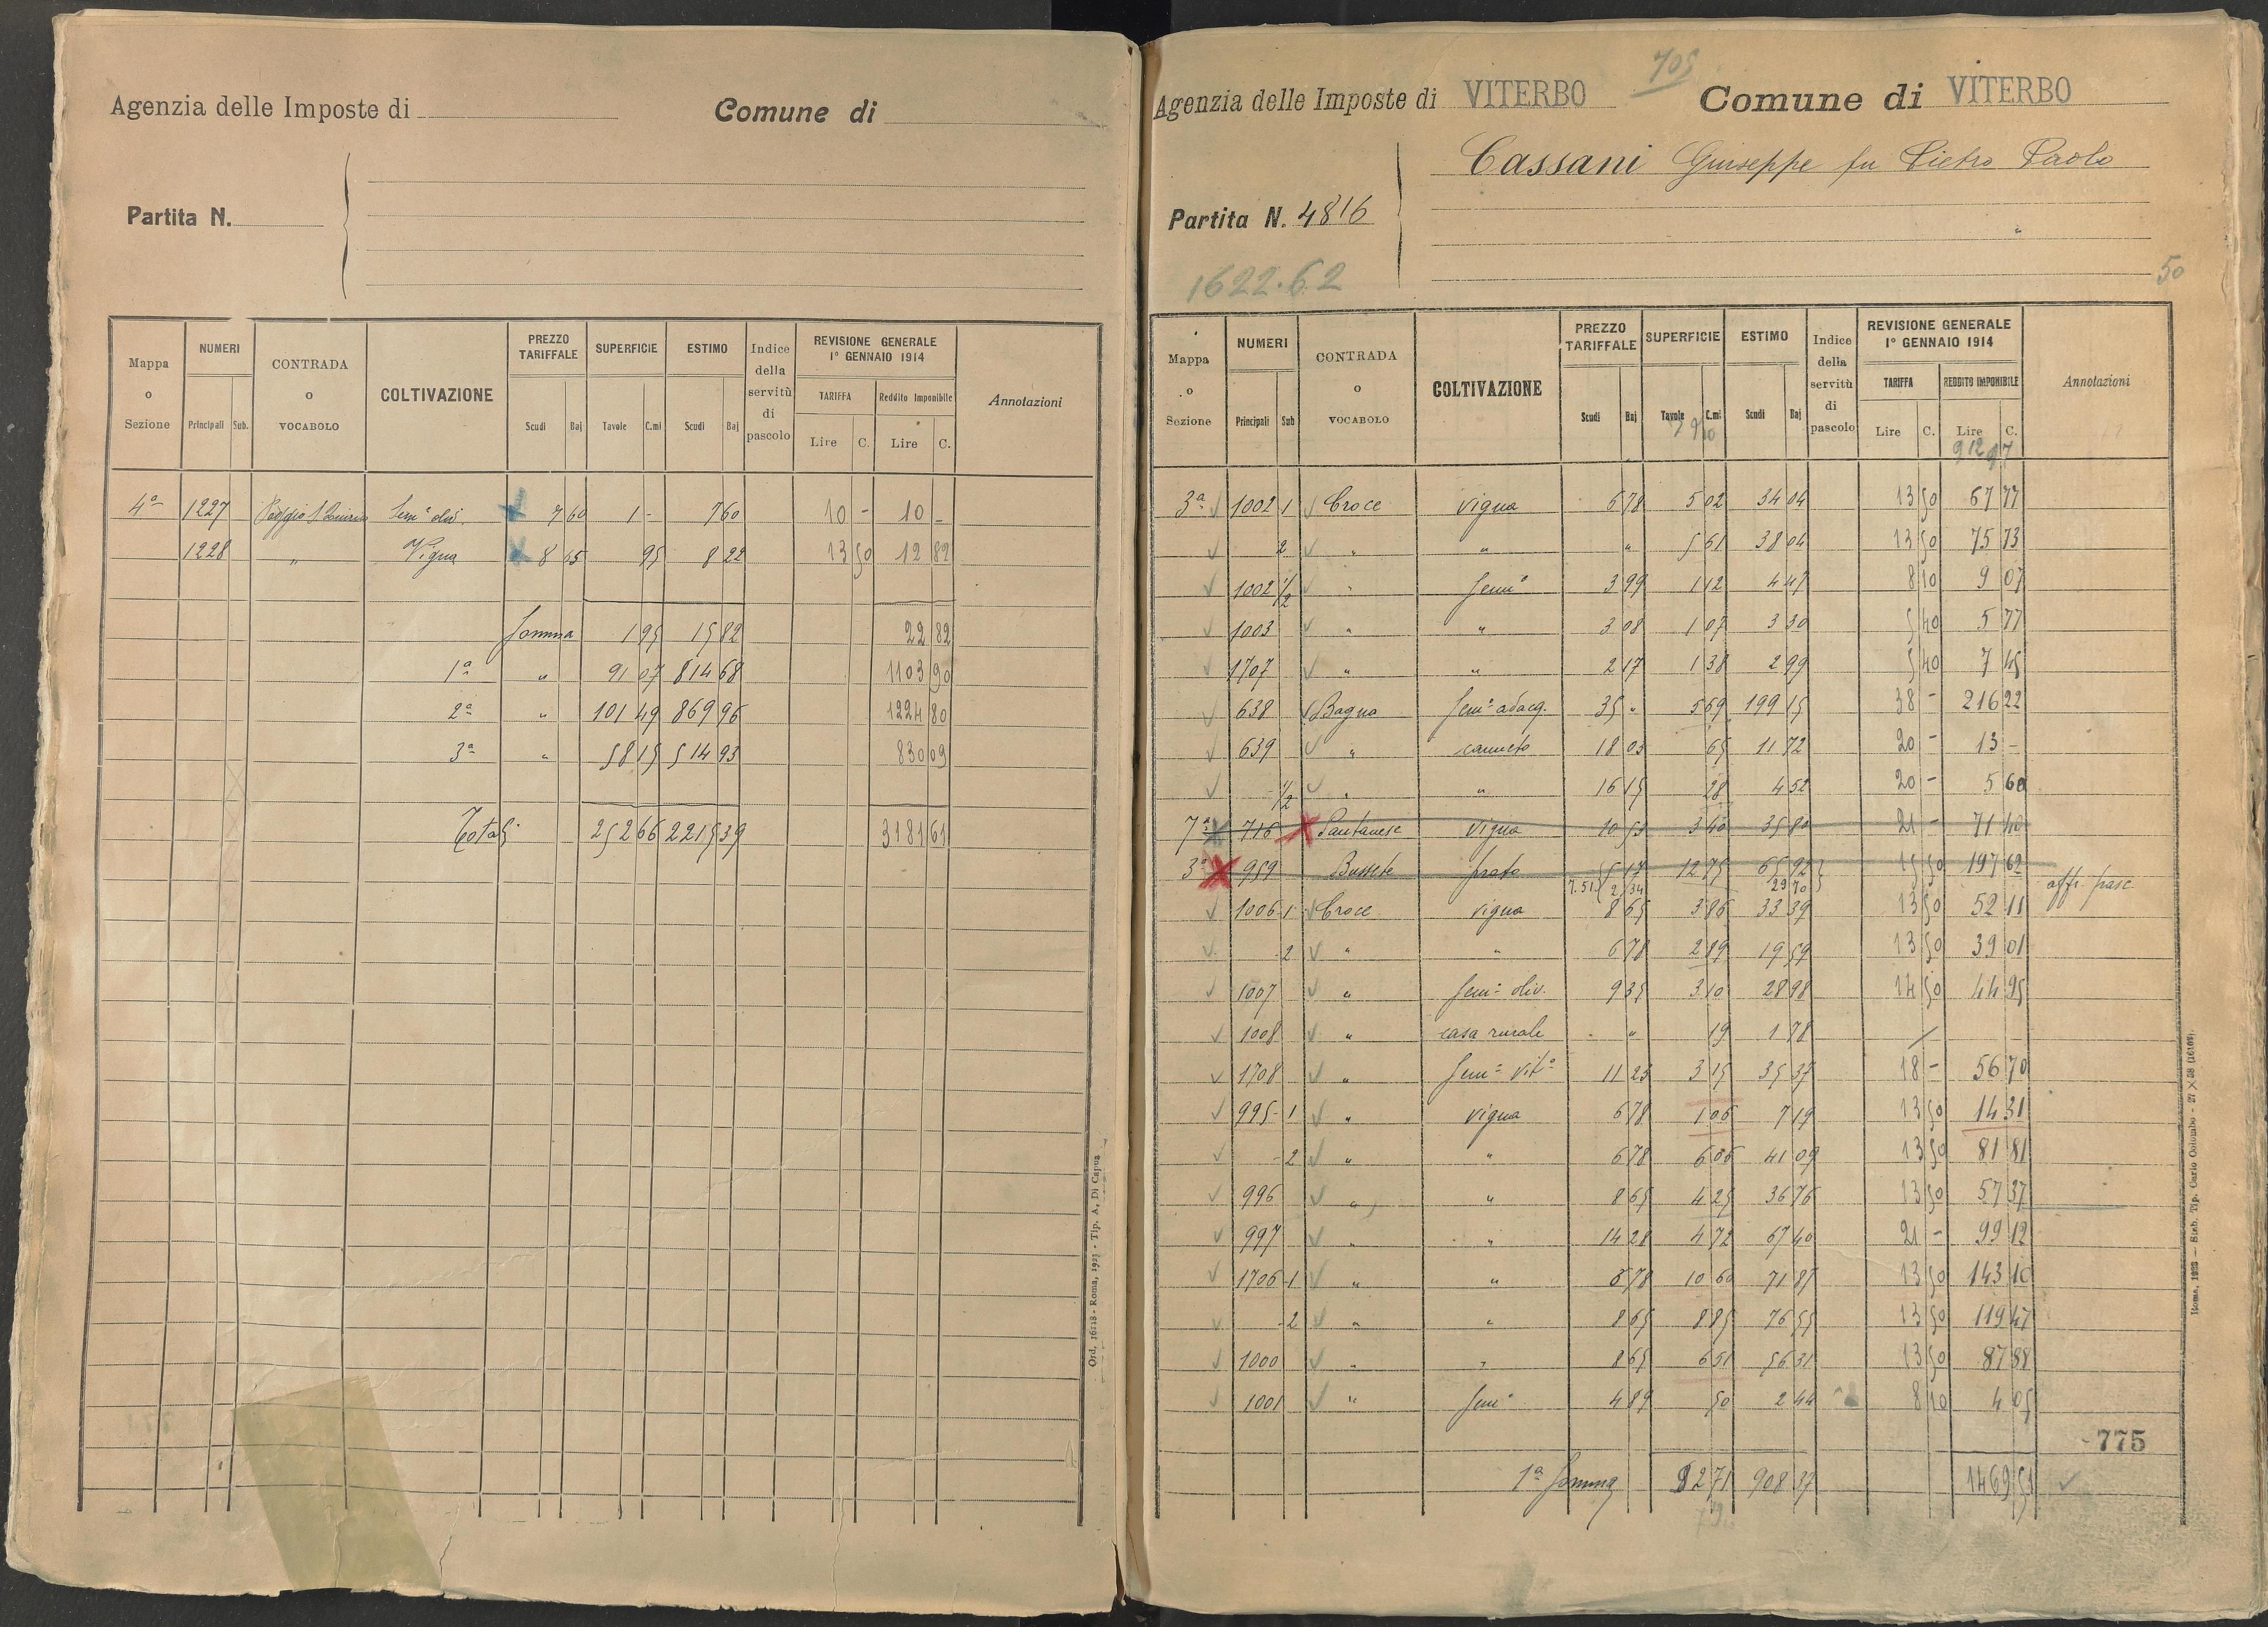 Agenzia delle Imposte di Comune di
Partita N.
Mappa o Sezione NUMERI Principali Sub. CONTRADA o VOCABOLO COLTIVAZIONE PREZZO TARIFFALE Scudi Baj SUPERFICIE Tavole C.mi ESTIMO Scudi Baj Indice della servitù di pascolo REVISIONE GENERALE 1° GENNAIO 1914 TARIFFA Lire C. Reddito Imponibile Lire C. Annotazioni
4ª 1227 Sem° oliv. 7 60 1 - 7 60 10 - 10 -
1228 " Vigna 8 65 95 8 22 13 50 12 82
Somma 1 95 15 82 22 82
1ª " 91 07 814 68 1103 90
2ª " 101 49 869 96 1224 80
3ª " 58 15 514 93 830 09
Totali 252 66 2215 39 3181 61
Ord. 16118 - Roma, 1923 - Tip. A. Di Capua
705
Agenzia delle Imposte di VITERBO Comune di VITERBO
Cassani Giuseppe fu Pietro Paolo
Partita N. 4816
1622.62
50
Mappa o Sezione NUMERI Principali Sub CONTRADA o VOCABOLO COLTIVAZIONE PREZZO TARIFFALE Scudi Baj SUPERFICIE Tavole C.mi ESTIMO Scudi Baj Indice della servitù di pascolo REVISIONE GENERALE 1° GENNAIO 1914 TARIFFA Lire C. REDDITO IMPONIBILE Lire C. Annotazioni
3ª 1002 1 Croce vigna 6 78 5 02 34 04 13 50 67 77
2 " " " 5 61 38 04 13 50 75 73
1002 1/2 " Sem° 3 99 1 12 4 47 8 10 9 07
1003 " " 3 08 1 07 3 30 5 40 5 77
1707 " " 2 17 1 38 2 99 5 40 7 45
638 Bagno Sem° adacq. 35 " 5 69 199 15 38 - 216 22
639 " canneto 18 03 65 11 72 20 - 13 -
1/2 " " 16 15 28 4 52 20 - 5 60
7ª 716 Pantanese vigna 10 53 3 40 35 80 21 - 71 40
3ª 959 Bussete prato 5 17 12 75 65 92 15 50 197 62
7.51 2 34 29 70 aff. pasc.
1006 1 Croce vigna 8 65 3 86 33 39 13 50 52 11
2 " " 6 78 2 89 19 59 13 50 39 01
1007 " Sem° oliv. 9 35 3 10 28 98 14 50 44 95
1008 " casa rurale " " 19 1 78
1708 " Sem° vit° 11 23 3 15 35 37 18 - 56 70
995 1 " vigna 6 78 1 06 7 19 13 50 14 31
2 " " 6 78 6 06 41 09 13 50 81 81
996 " " 8 65 4 25 36 76 13 50 57 37
997 " " 14 28 4 72 67 40 21 - 99 12
1706 1 " " 6 78 10 60 71 87 13 50 143 10
2 " " 8 65 8 85 76 55 13 50 119 47
1000 " " 8 65 6 51 56 31 13 50 87 88
1001 " Sem° 4 89 50 2 44 8 10 4 05
775
1ª Somma 92 71 908 37 1469 51
Roma, 1923 — Stab. Tip. Carlo Colombo - 27 × 38 (16109)